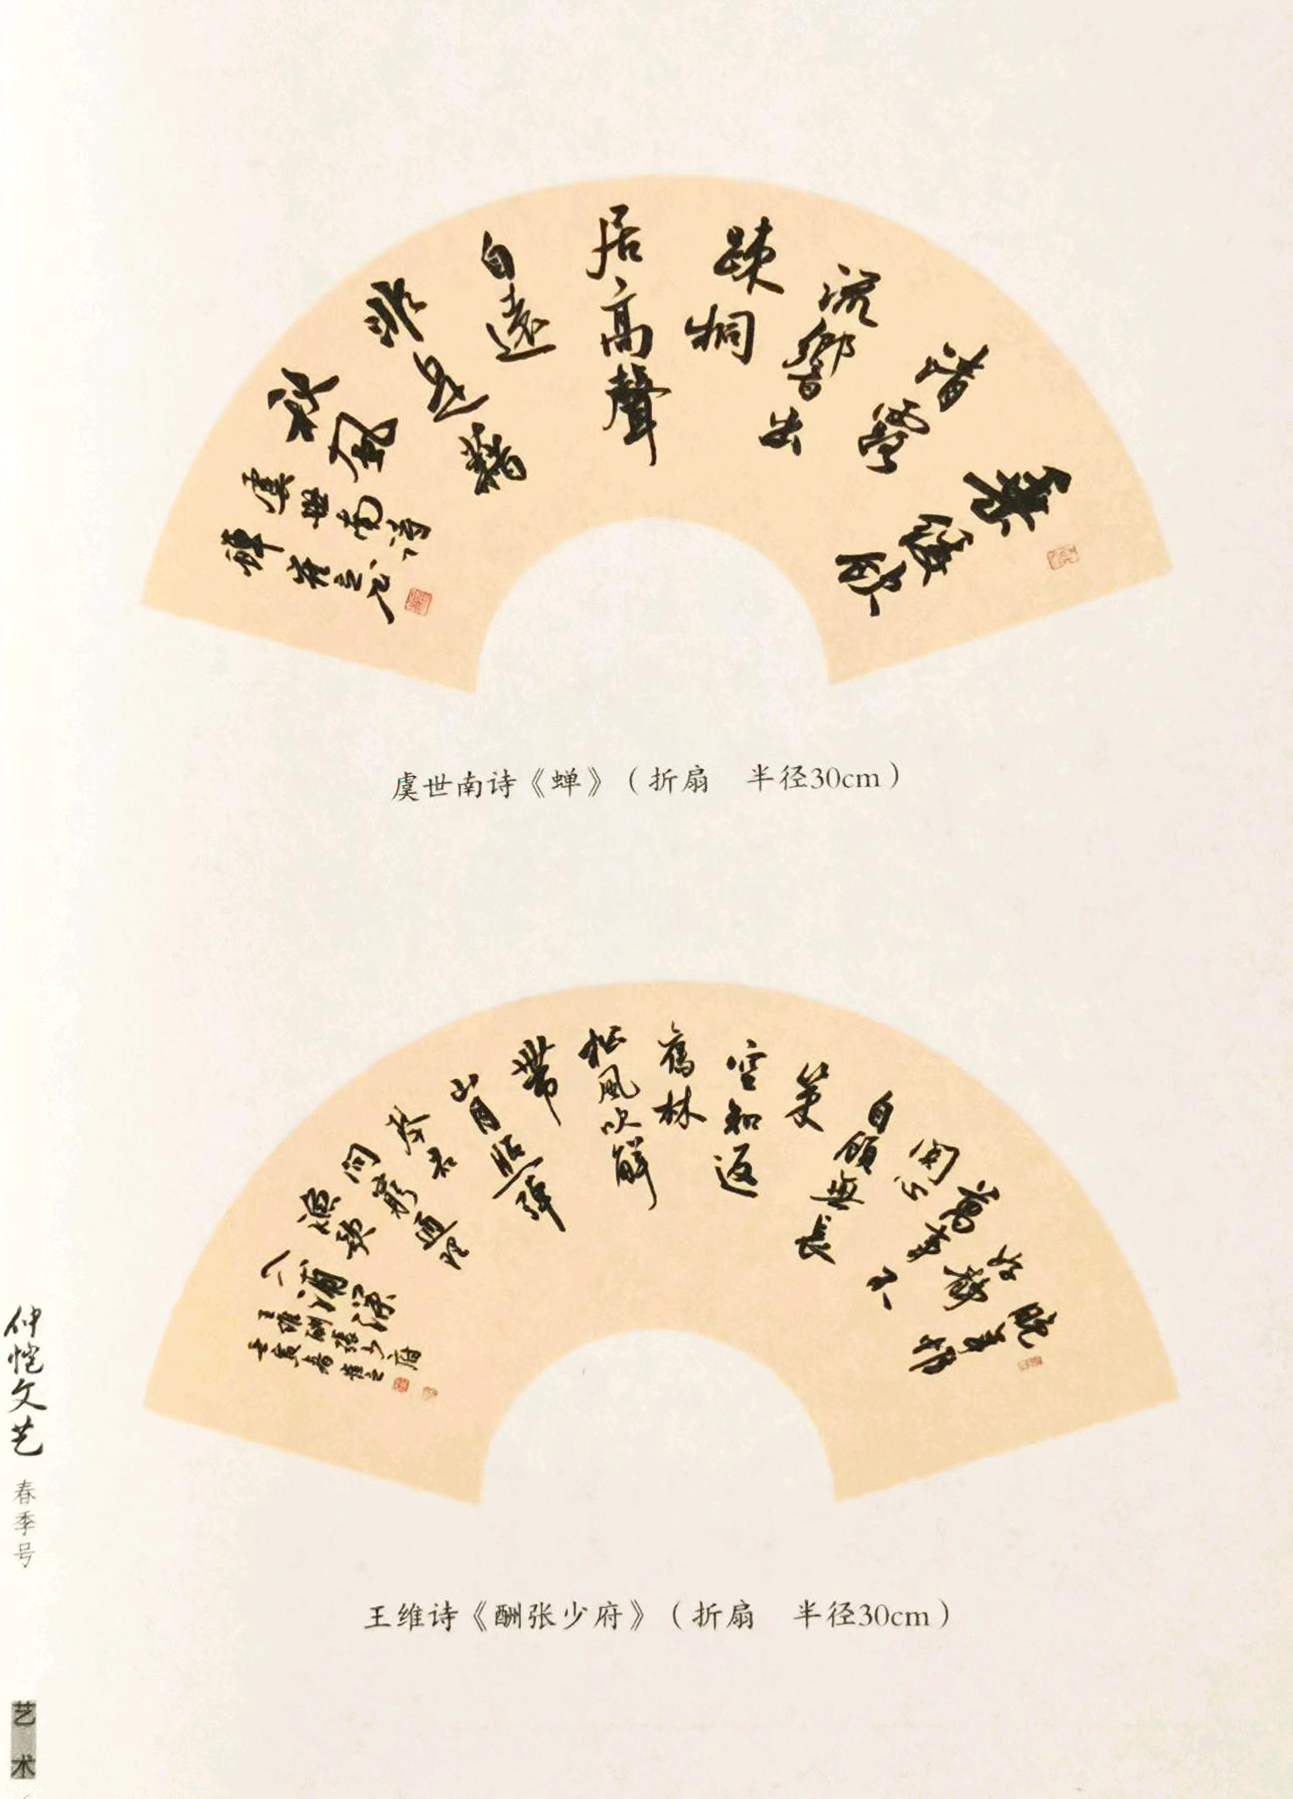 垂緌飲
清露
流響出
疎桐
居高聲
自遠
非是藉
秋風
虞世南詩
蟬
虞世南诗《蝉》（折扇 半径30cm）
晚年惟
好靜
萬事不
關心
自顧無長
策
空知返
舊林
松風吹解
帶
山月照彈
琴君
問窮通理
漁歌
入浦深
王維酬張少府
壬寅春
王维诗《酬张少府》（折扇 半径30cm）
仲恺文艺
春季号
艺术